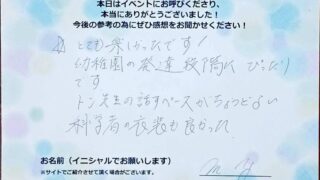 本日はイベントにお呼びくださり、
本当にありがとうございました!
今後の参考の為にぜひ感想をお聞かせください!
とても楽しかったです!
幼稚園の発達段階に ぴったり
です
トン先生の話すペースがちょうどよい
科学者の衣装も良かった
お名前(イニシャルでお願いします)
※サイトでご紹介させて頂く場合がございます。
m y